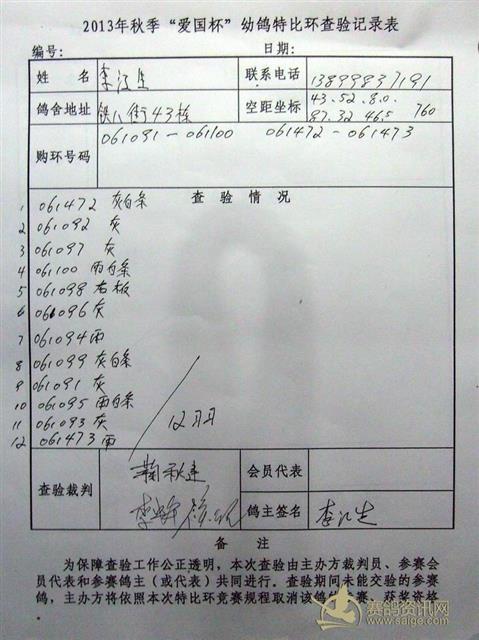 2013年秋季“爱国杯”幼鸽特比环查验记录表
编号: 日期:
姓名 李江生 联系电话 13899837191
鸽舍地址 铁八街43栋 空距坐标 43.52.8.0. 87.32 46.5 760
购环号码 061091-061100 061472-061473
查验情况
1 061472 灰白条
2 061092 灰
3 061097 灰
4 061100 雨白条
5 061098 石板
6 061096 灰
7 061094 雨
8 061099 灰白条
9 061091 灰
10 061095 雨白条
11 061093 灰
12 061473 雨
12羽
查验裁判 会员代表
鸽主签名 李江生
备注
为保障查验工作公正透明，本次查验由主办方裁判员、参赛会
员代表和参赛鸽主（或代表）共同进行。查验期间未能交验的参赛
鸽，主办方将依照本次特比环竞赛规程取消该鸽的参赛、获奖资格
赛鸽资讯网
www.saige.com